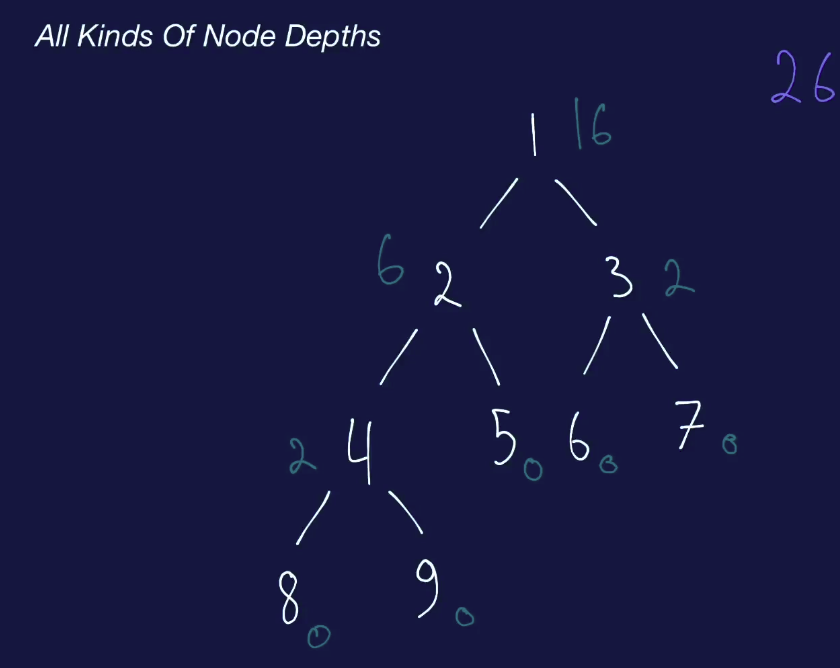 All Kinds Of Node Depths
26
1 16
6 2 3 2
2 4 5 0 6 0 7 0
8 0 9 0